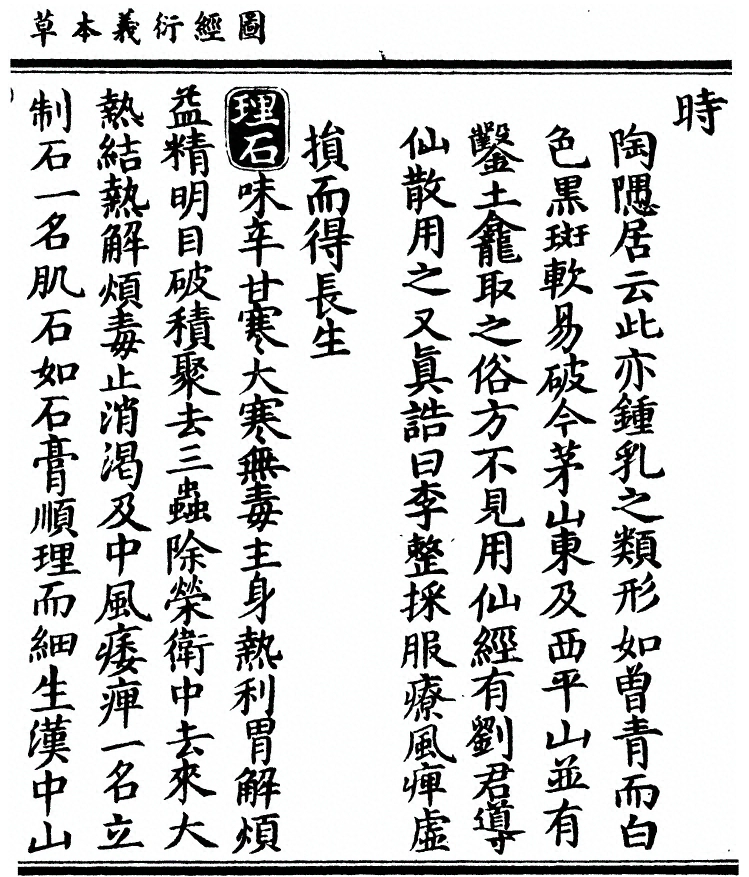 圖經衍義本草
時
陶隱居云此亦鍾乳之類形如曾青而白
色黑斑軟易破今茅山東及西平山並有
鑿土龕取之俗方不見用仙經有劉君導
仙散用之又眞誥曰李整採服療風痺虛
損而得長生
理石味辛甘寒大寒無毒主身熱利胃解煩
益精明目破積聚去三蟲除榮衛中去來大
熱結熱解煩毒止消渴及中風痿痺一名立
制石一名肌石如石膏順理而細生漢中山